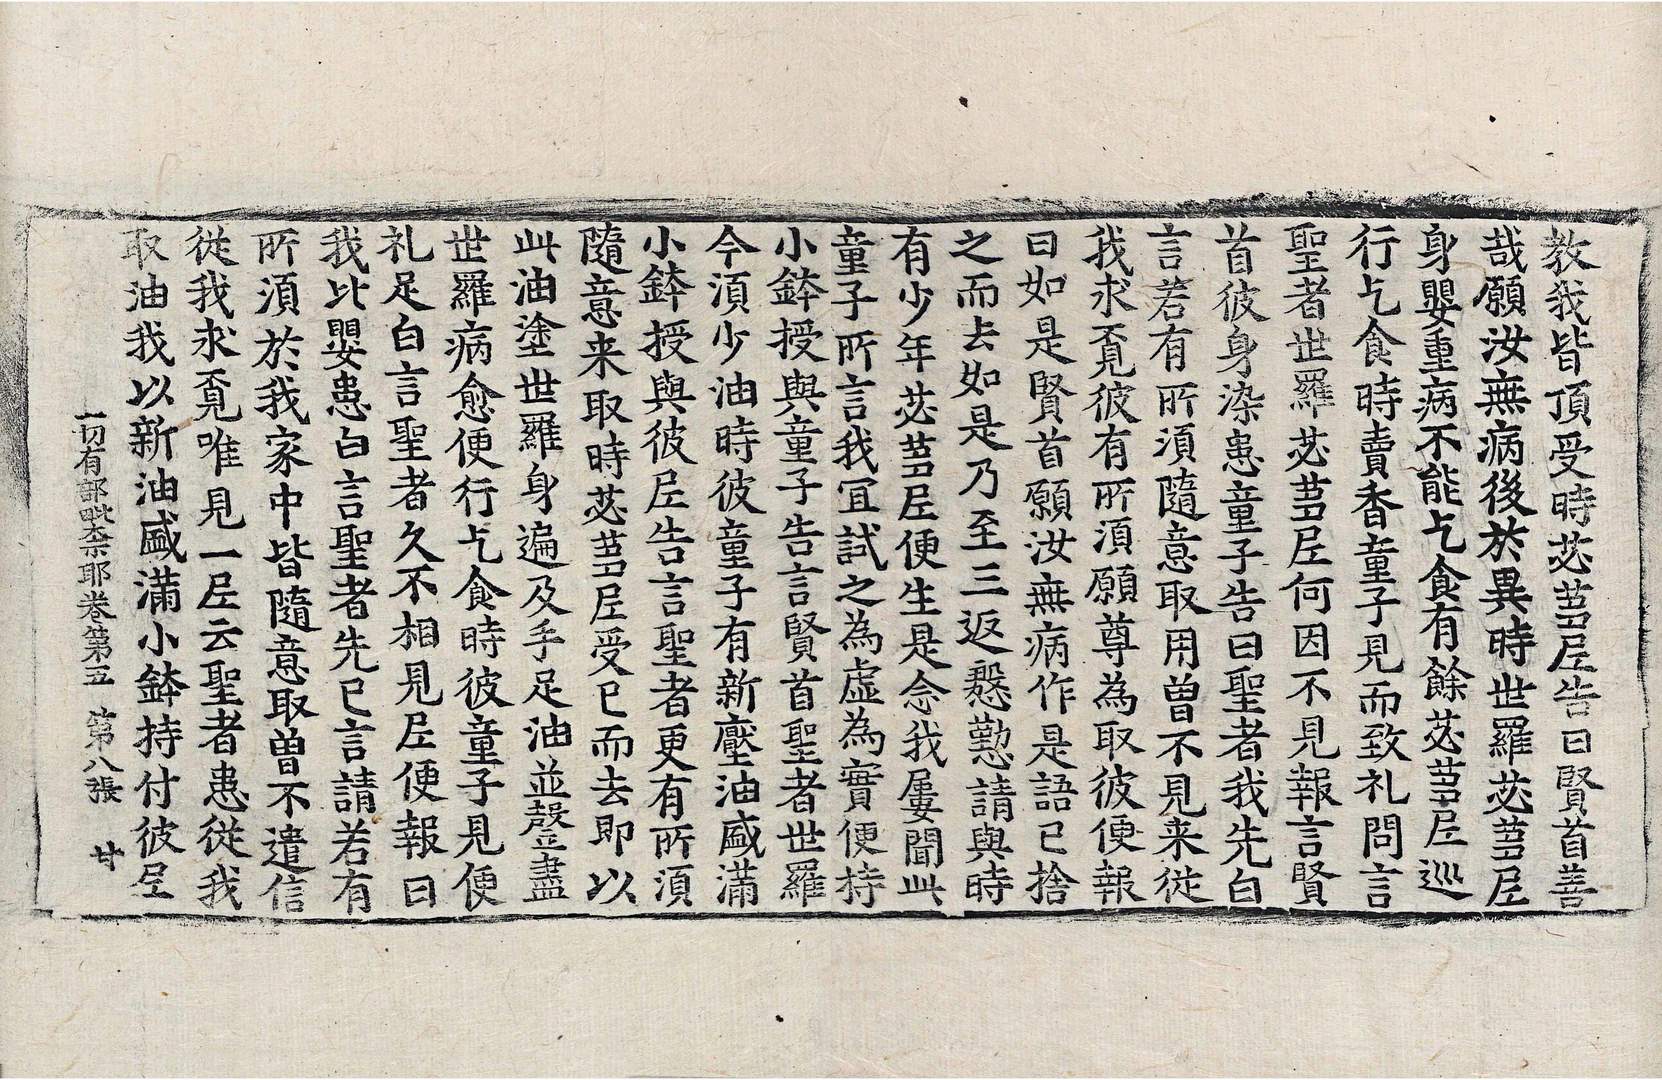 教我皆頂受時苾芻尼告曰賢首善
哉願汝無病後於異時世羅苾芻尼
身嬰重病不能乞食有餘苾芻尼巡
行乞食時賣香童子見而致礼問言
聖者世羅苾芻尼何因不見報言賢
首彼身染患童子告曰聖者我先白
言若有所須隨意取用曾不見来從
我求覔彼有所須願尊為取彼便報
曰如是賢首願汝無病作是語已捨
之而去如是乃至三返慇懃請與時
有少年苾芻尼便生是念我屢聞此
童子所言我宜試之為虛為實便持
小鉢授與童子告言賢首聖者世羅
今須少油時彼童子有新壓油盛滿
小鉢授與彼尼告言聖者更有所須
隨意来取時苾芻尼受已而去即以
此油塗世羅身遍及手足油並罄盡
世羅病愈便行乞食時彼童子見便
礼足白言聖者久不相見尼便報曰
我比嬰患白言聖者先已言請若有
所須於我家中皆隨意取曾不遣信
從我求覔唯見一尼云聖者患從我
取油我以新油盛滿小鉢持付彼尼
一切有部毗柰耶卷第五 第八張 甘